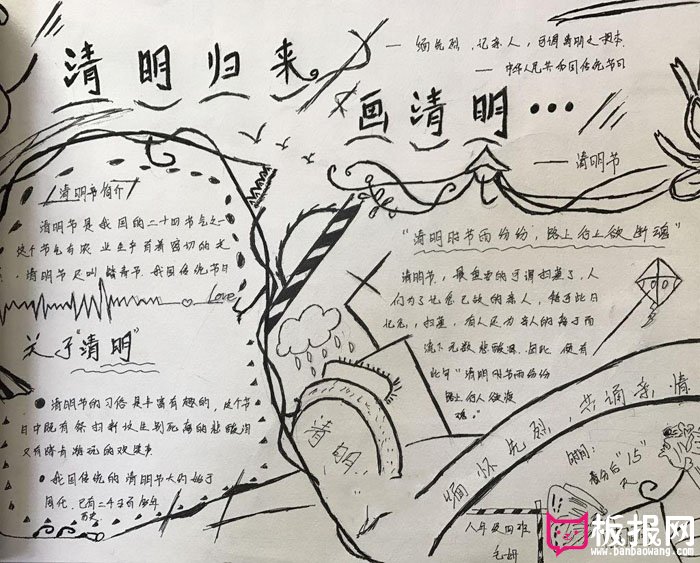 清明归来
—缅先烈,记亲人,
—中华人民共和国传统节日
画清明…
—清明节
清明节简介
清明节是我国的二十四节气之一
这个节气与农业生产有着密切的关
,清明节又叫踏青节,我国传统节日
Love
关于"清明"
清明节的习俗是丰富有趣的,这个节
日中既有祭扫新坟生别死离的悲酸泪
又有踏青游玩的欢笑声
我国传统的清明节大约始于
周代,已有二千五百多年
历史
"清明时节雨纷纷,路上行人欲断魂"
清明节,最重要的
们为了
记忆,扫墓,有人
流下无数悲酸泪。因此
此句"清明时节雨纷纷
路上行人欲断
魂。"
清明
缅怀先烈,共诵亲情
时间:
春分后"15"
天
八年级四班
板报网
www.banbaowang.com